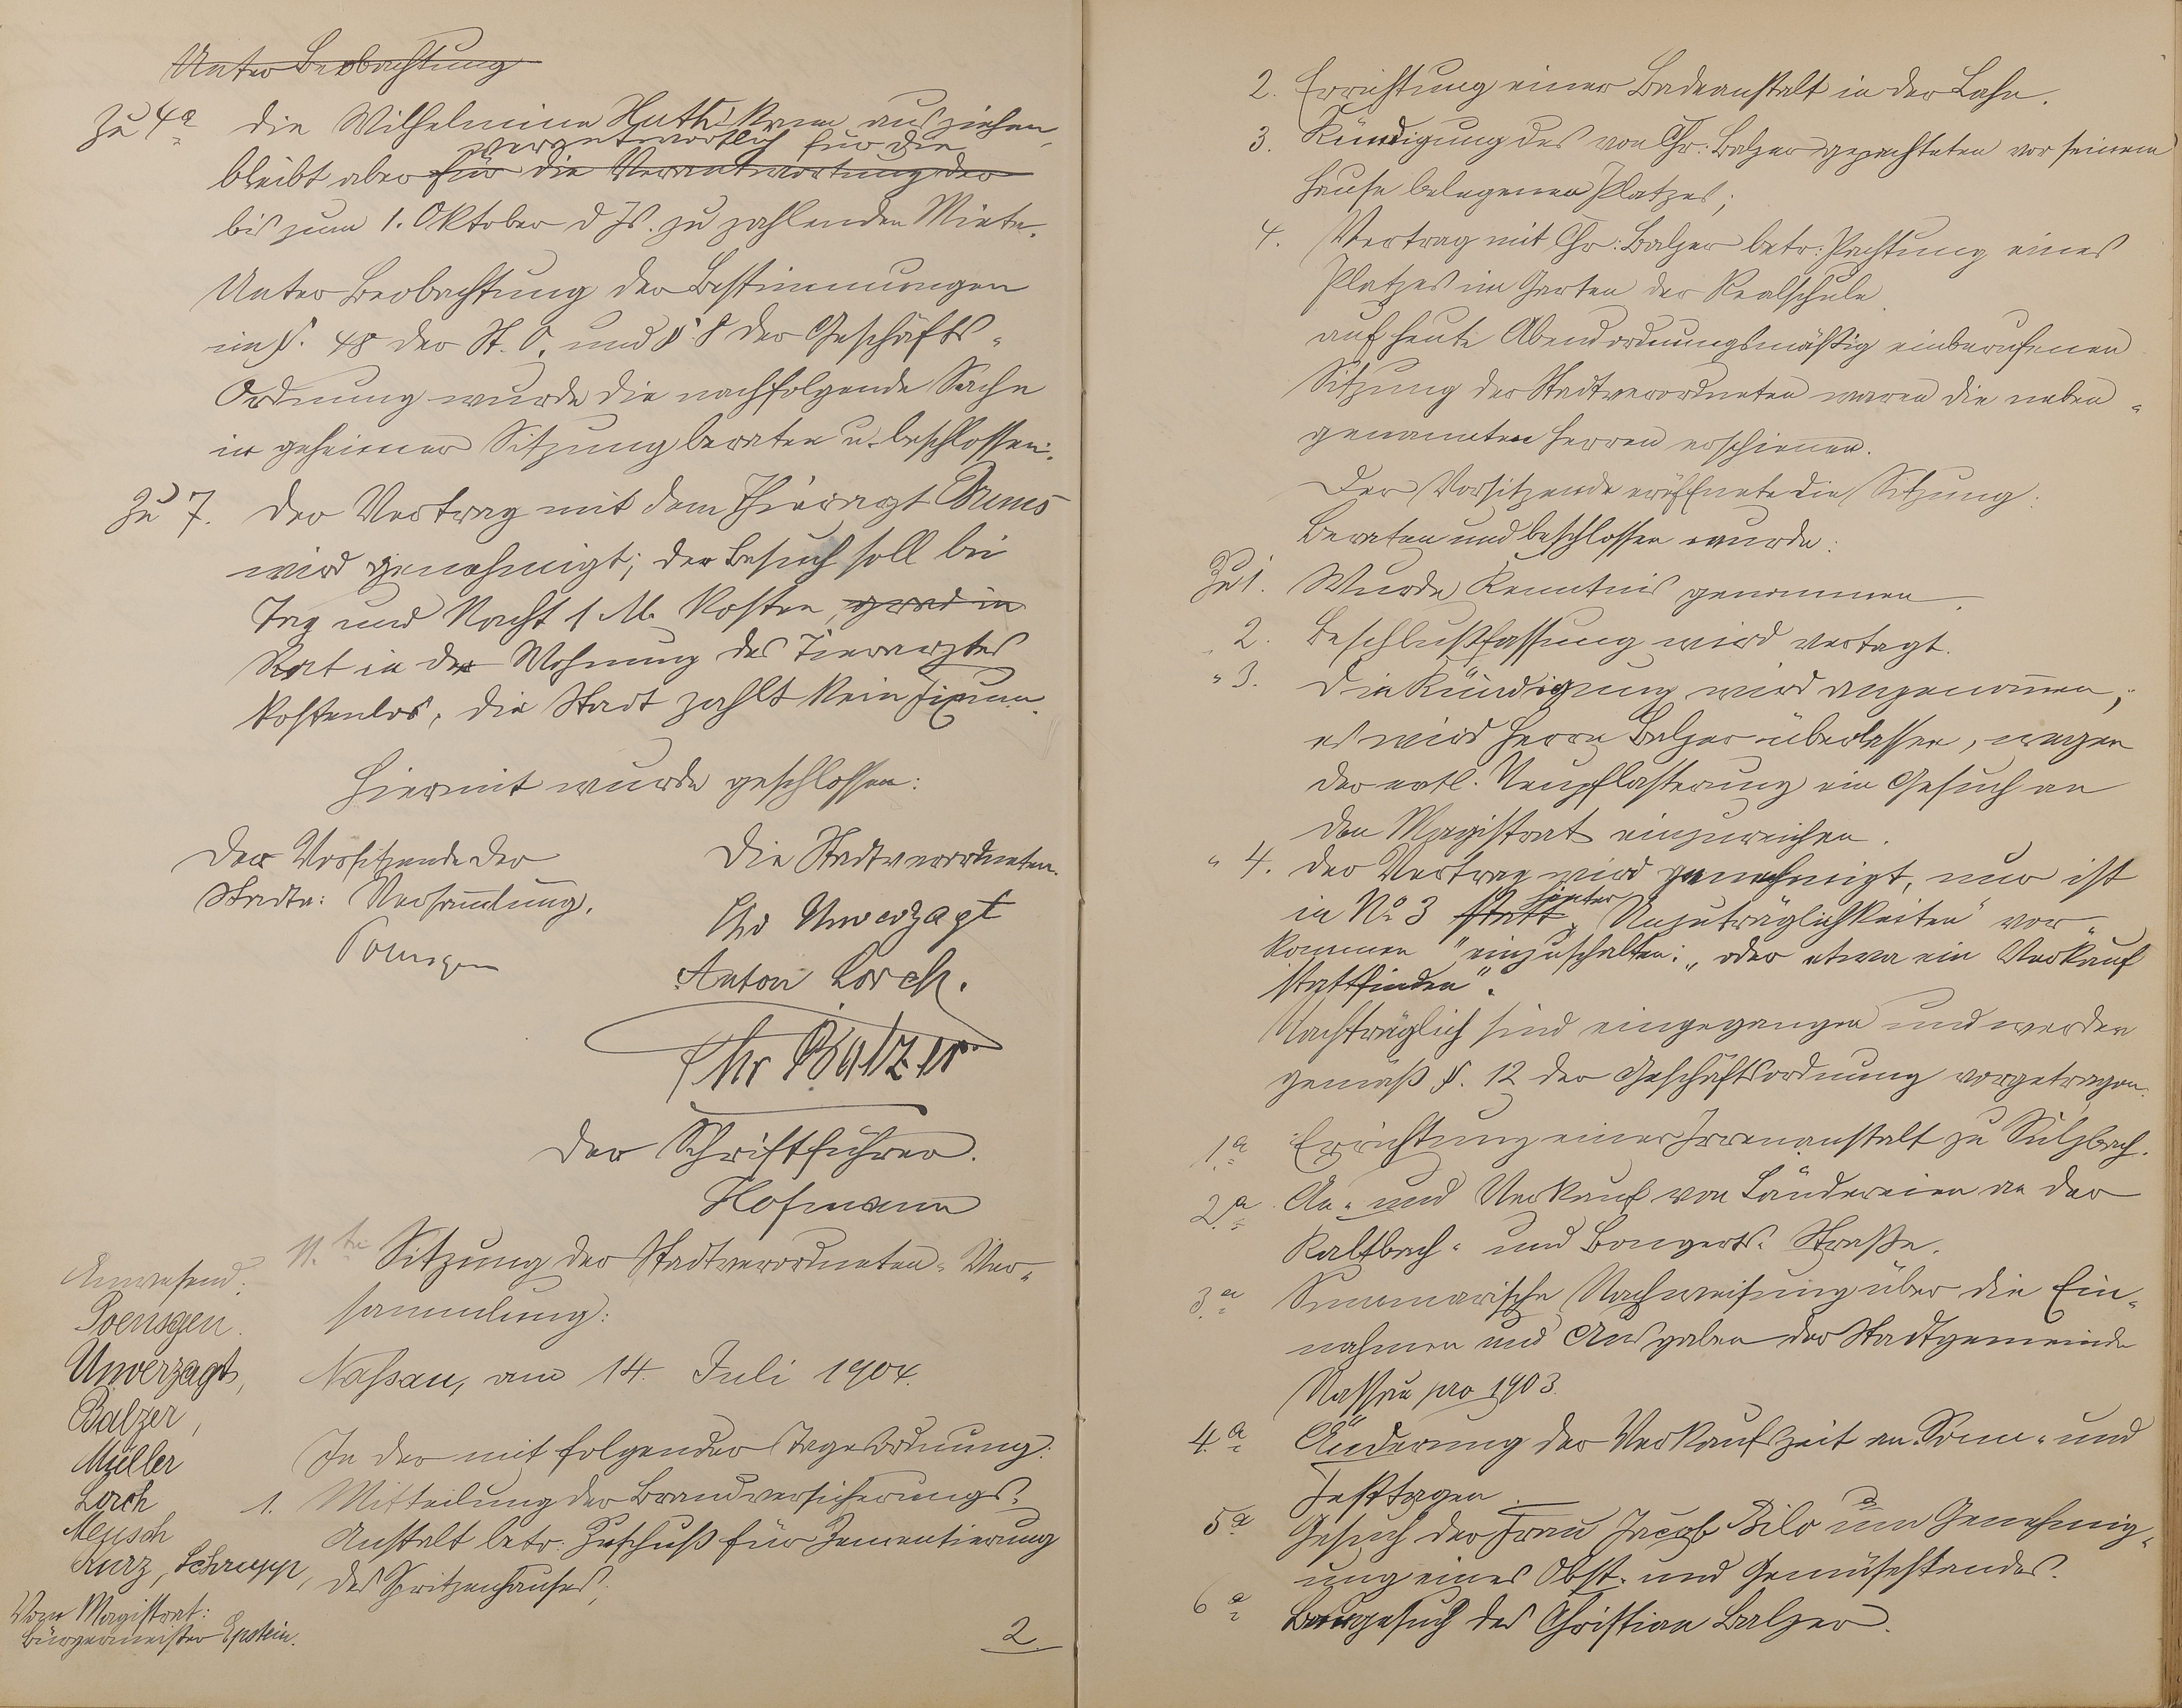 Unter Beobachtung
Zu 4a die Wilhelmine Huth kann ausziehen,
verantwortlich für die
bleibt aber für die Verantwortung der
bis zum 1. Oktober d Js. zu zahlenden Miete.
Unter Beobachtung der Bestimmungen
im §. 48 der St. O. und § 8 der Geschäfts-
Ordnung wurde die nachfolgende Sache
in geheimer Sitzung beraten u. beschlossen:
Zu 7. der Vertrag mit dem Thierarzt
wird genehmigt; der Besuch soll bei
Tag und Nacht 1 M. kosten,
Rat in der Wohnung des Tierarztes
kostenlos, die Stadt zahlt kein Fixum.
Hiermit wurde geschlossen:
Der Vorsitzende der
Stadtv: Versammlung.
Poensgen
Die Stadtverordneten.
Chr Unverzagt
Anton Lorch.
Chr Balzer
Der Schriftführer.
Hofmann
11.te Sitzung der Stadtverordneten-Ver-
sammlung:
Anwesend:
Poensgen.
Unverzagt,
Balzer,
Müller
Lorch
Meusch
Kurz, Schrupp,
Vom Magistrat:
Bürgermeister Epstein.
Nassau, am 14. Juli 1904.
In der mit folgender Tagesordnung:
1. Mitteilung der Brandversicherungs-
Anstalt betr: Zuschuß für Zementierung
des Spritzenhauses;
2
2. Errichtung einer Badeanstalt in der Lahn.
3. Kündigung des von Chr: Balzer gepachteten vor seinem
Hause belegenen Platzes;
4. Vertrag mit Chr: Balzer betr: Pachtung eines
Platzes im Garten der Realschule
auf heute Abend ordnungsmäßig einberufenen
Sitzung der Stadtverordneten waren die neben-
genannten Herren erschienen.
Der Vorsitzende eröffnete die Sitzung:
Beraten und beschlossen wurde:
Zu 1. Wurde Kenntnis genommen.
" 2. Beschlußfassung wird vertagt.
" 3. Die Kündigung wird angenommen;
es wird Herrn Balzer überlassen, wegen
der evtl. Neupflasterung ein Gesuch an
den Magistrat einzureichen.
" 4. der Vertrag wird genehmigt, nur ist
hinter
in No 3 statt „Unzuträglichkeiten" vor-
kommen "einzuschalten: „oder etwa ein Verkauf
stattfinden".
Nachträglich sind eingegangen und werden
gemäß §. 12 der Geschäftsordnung vorgetragen.
1.a Errichtung einer Irrenanstalt zu Sulzbach.
2.a An- und Verkauf von Ländereien an der
Kaltbach- und Bongerts-Straße.
3.a Summarische Nachweisung über die Ein-
nahmen und Ausgaben der Stadtgemeinde
Nassau pro 1903.
4.a Änderung der Verkaufszeit an Sonn- und
Festtagen.
5a Gesuch der Frau Jacob Bilo um Genehmig-
ung eines Obst- und Gemüsestandes.
6a Baugesuch des Christian Balzer.